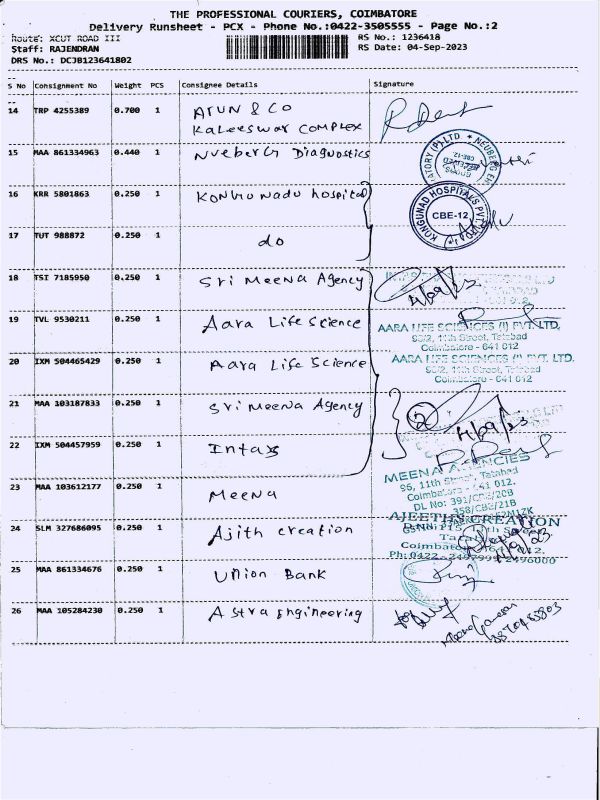 THE PROFESSIONAL COURIERS, COIMBATORE
Delivery Runsheet - PCX - Phone No.:0422-3505555 - Page No.:2
Route: XCUT ROAD III
RS No.: 1236418
Staff: RAJENDRAN
RS Date: 04-Sep-2023
DRS No.: DCJB123641802
S No Consignment No Weight PCS Consignee Details Signature
14 TRP 4255389 0.700 1 Arun & Co
Kaleeswar Complex
15 MAA 861334963 0.440 1 Nueberg Diagnostics
16 KRR 5801863 0.250 1 Kongunadu hospital
KONGUNAD HOSPITALS PVT.
CBE-12
17 TUT 988872 0.250 1 do
18 TSI 7185950 0.250 1 Sri Meena Agency
4/09/23
19 TVL 9530211 0.250 1 Aara Life Science
AARA LIFE SCIENCES (I) PVT. LTD,
95/2, 11th Street, Tatabad
Coimbatore - 641 012
20 IXM 504465429 0.250 1 Aara Life Science
AARA LIFE SCIENCES (I) PVT. LTD.
95/2, 11th Street, Tatabad
Coimbatore - 641 012
21 MAA 103187833 0.250 1 Sri Meena Agency
2
4/09/23
22 IXM 504457959 0.250 1 Intas
MEENA AGENCIES
95, 11th Street, Tatabad
Coimbatore - 641 012.
23 MAA 103612177 0.250 1 Meena
DL No: 391/CB2/20B
358/CB2/21B
24 SLM 327686095 0.250 1 Ajith creation
AJEETH CREATION
25 MAA 861334676 0.250 1 Union Bank
26 MAA 105284230 0.250 1 Astra Engineering